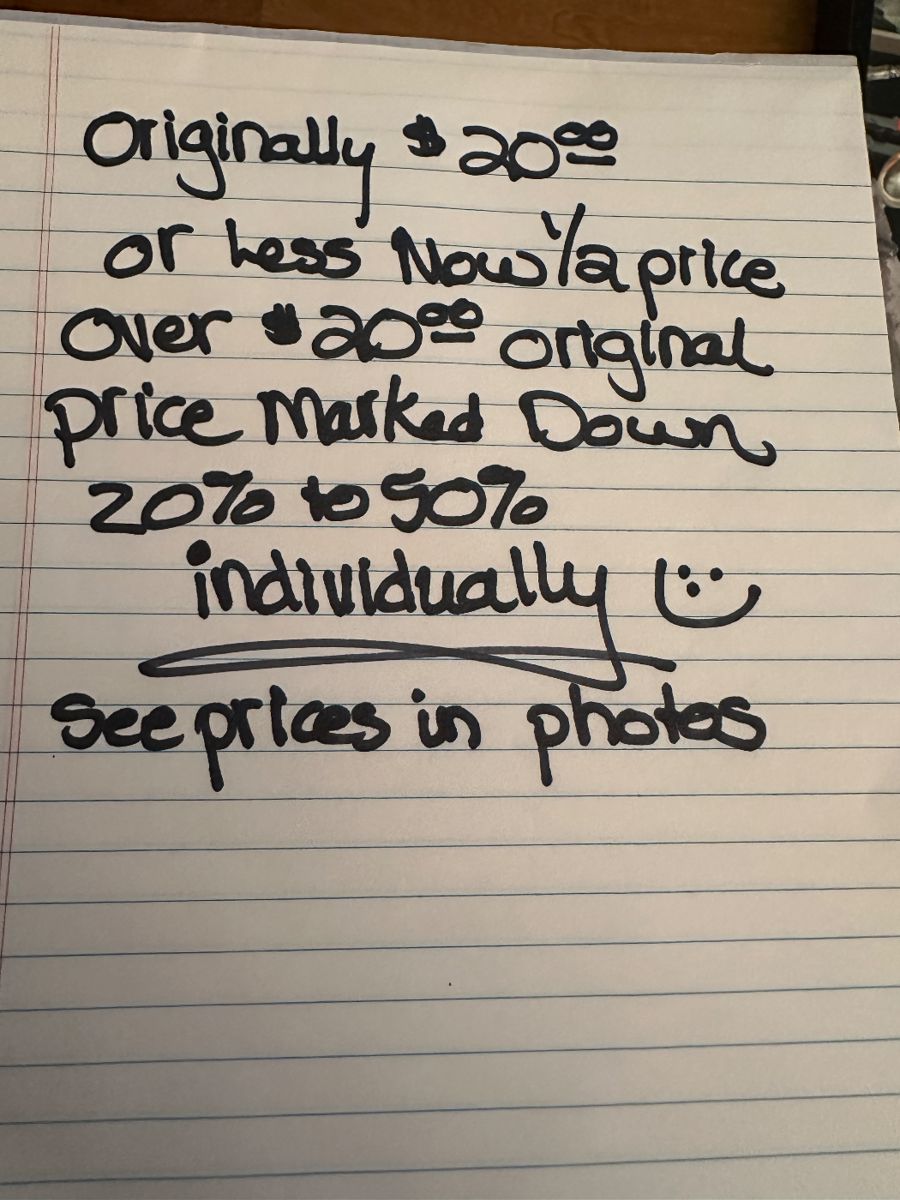 Originally $20.00
or Less Now 1/2 price
Over $20.00 original
price Marked Down
20% to 50%
individually
See prices in photos